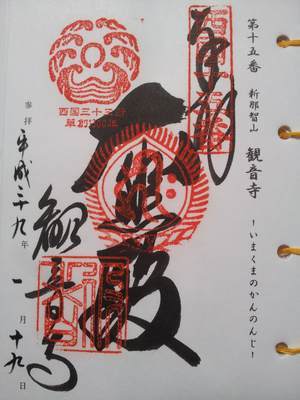 第十五番 新那智山 観音寺 -いまくまのかんのんじ-
奉拝
大悲殿
観音寺
西国三十三所
草創1300年
参拝 平成二十九年 一月十九日